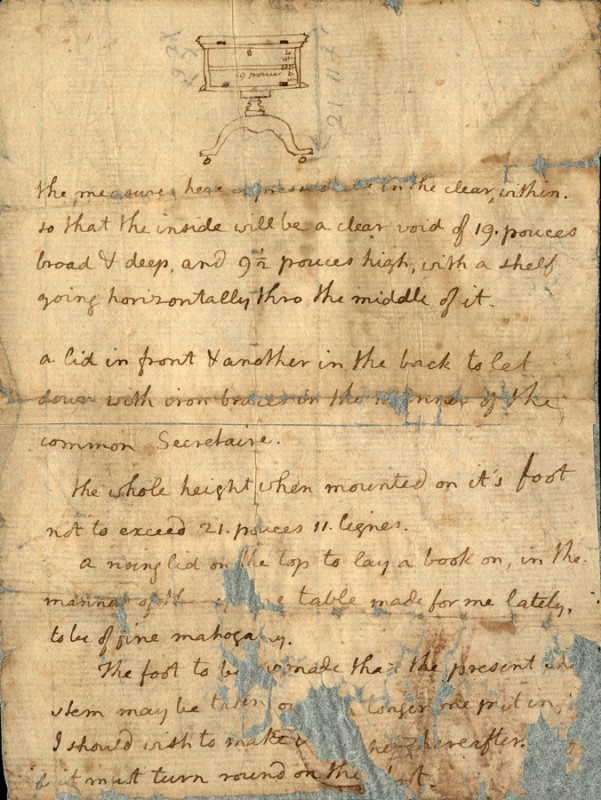 19 pouces
21 11
the measures here in the clear, within.
so that the inside will be a clear void of 19. pouces
broad & deep, and 9½ pouces high, with a shelf
going horizontally thro the middle of it.
a lid in front & another in the back to let
down with iron braces in the manner of the
common Secretaire.
the whole height when mounted on it's foot
not to exceed 21. pouces 11. lignes.
a rising lid on the top to lay a book on, in the
manner of the table made for me lately,
to be of fine mahogany.
The foot to be so made that the present
stem may be taken longer one put in,
I should wish to make hereafter.
it must turn round on the foot.